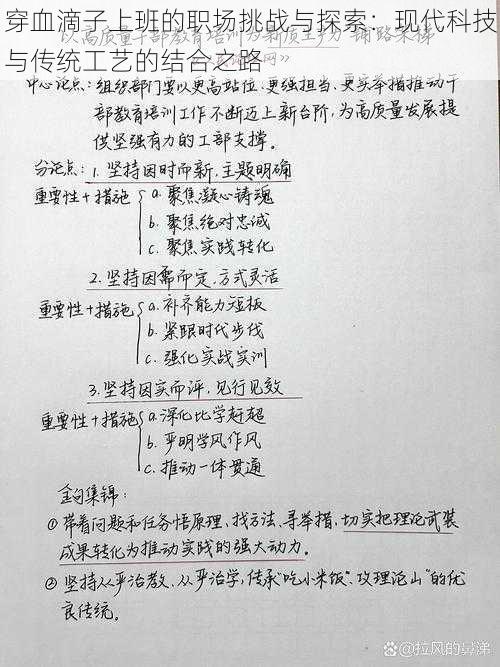 穿血滴子上班的职场挑战与探索：现代科技
与传统工艺的结合之路
以高质量干部教育培训为新质生产力铺路架梯
中心论点：组织部门要以更高站位、更强担当、更实举措推动干
部教育培训工作不断迈上新台阶，为高质量发展提
供坚强有力的工部支撑。
分论点：1. 坚持因时而新，主题明确
重要性+措施 a. 聚焦凝心铸魂
b. 聚焦绝对忠诚
c. 聚焦实践转化
2. 坚持因需而定，方式灵活
重要性+措施 a. 补齐能力短板
b. 紧跟时代步伐
c. 强化实战实训
3. 坚持因实而评，见行见效
重要性+措施 a. 深化比学赶超
b. 严明学风作风
c. 推动一体贯通
金句集锦：
①带着问题和任务悟原理、找方法、寻举措，切实把理论武装
成果转化为推动实践的强大动力。
②坚持从严治教、从严治学，传承"吃小米饭"、攻理论山"的优
良传统。
@拉风的鼻涕